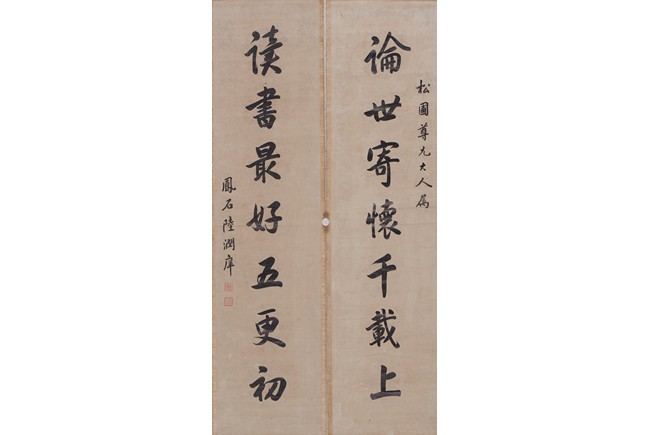 松園尊兄大人屬
論世寄懷千載上
讀書最好五更初
鳳石陸潤庠